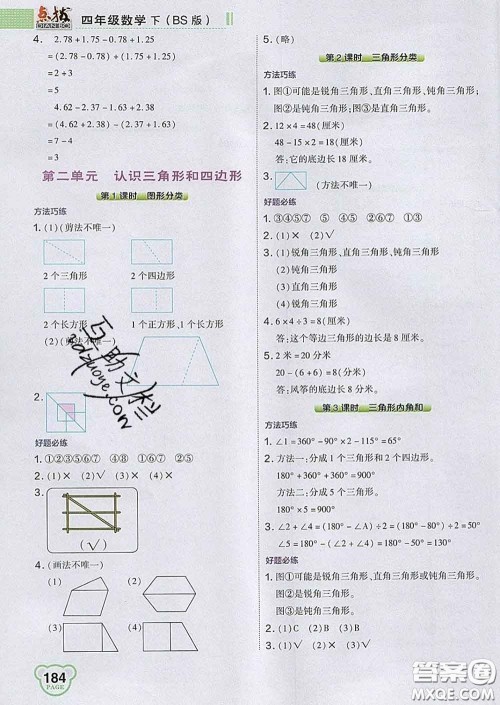 点拨
DIANBO
四年级数学 下（BS 版）
4. 2.78＋1.75－0.78＋1.25
=2.78－0.78＋1.75＋1.25
=2＋3
=5
4.62－2.37－2.63＋2.38
=(4.62＋2.38)－(2.37＋2.63)
=7－4
=3
第二单元 认识三角形和四边形
第 1 课时 图形分类
方法巧练
1. (1)(剪法不唯一)
2 个三角形 2 个四边形
2 个长方形 1 个正方形,1 个长方形
(2)(剪法不唯一)
2.
好题必练
1. ①②③⑤⑥⑦ ④⑧ ①⑤⑥⑦ ②③
2. (1)× (2)√ (3)√ (4)×
3.
(√)
4. (画法不唯一)
(1) (2)
(3) (4)
184
PAGE
5. (略)
第 2 课时 三角形分类
方法巧练
1. 图①可能是锐角三角形、直角三角形、钝角三角形;
图②是钝角三角形;图③是直角三角形。
2. 12×4=48(厘米)
48－15×2=18(厘米)
答:它的底边长 18 厘米。
3. (方法不唯一)
好题必练
1. ③④⑤⑦ ⑤ ②⑥⑦ ①③
2. (1)× (2)√
3. (1)锐角三角形、直角三角形、钝角三角形
(2)钝角三角形
(3)直角三角形
(4)锐角三角形
4. 6×4÷3=8(厘米)
答:这个等边三角形的边长是 8 厘米。
5. 2 米=20 分米
20－(6＋6)=8(分米)
答:风筝的底边长是 8 分米。
第 3 课时 三角形内角和
方法巧练
1. ∠1=360°－90°×2－60°=120°
2. 方法一:分成 1 个四边形和 2 个三角形。
180°＋360°＋360°=900°
方法二:分成 5 个三角形。
180°×5=900°
3. ∠2＋∠4=(180°－80°)÷(180°－80°)÷2=50°
∠5=180°－50°=130°
好题必练
1. 图①可能是锐角三角形、直角三角形或钝角三角形。
图②是锐角三角形。
图③是钝角三角形。
2. (1)C (2)B (3)B
3. (1)× (2)× (3)√
互助文化
zdzuoye.com
答案圈
MXQE.COM